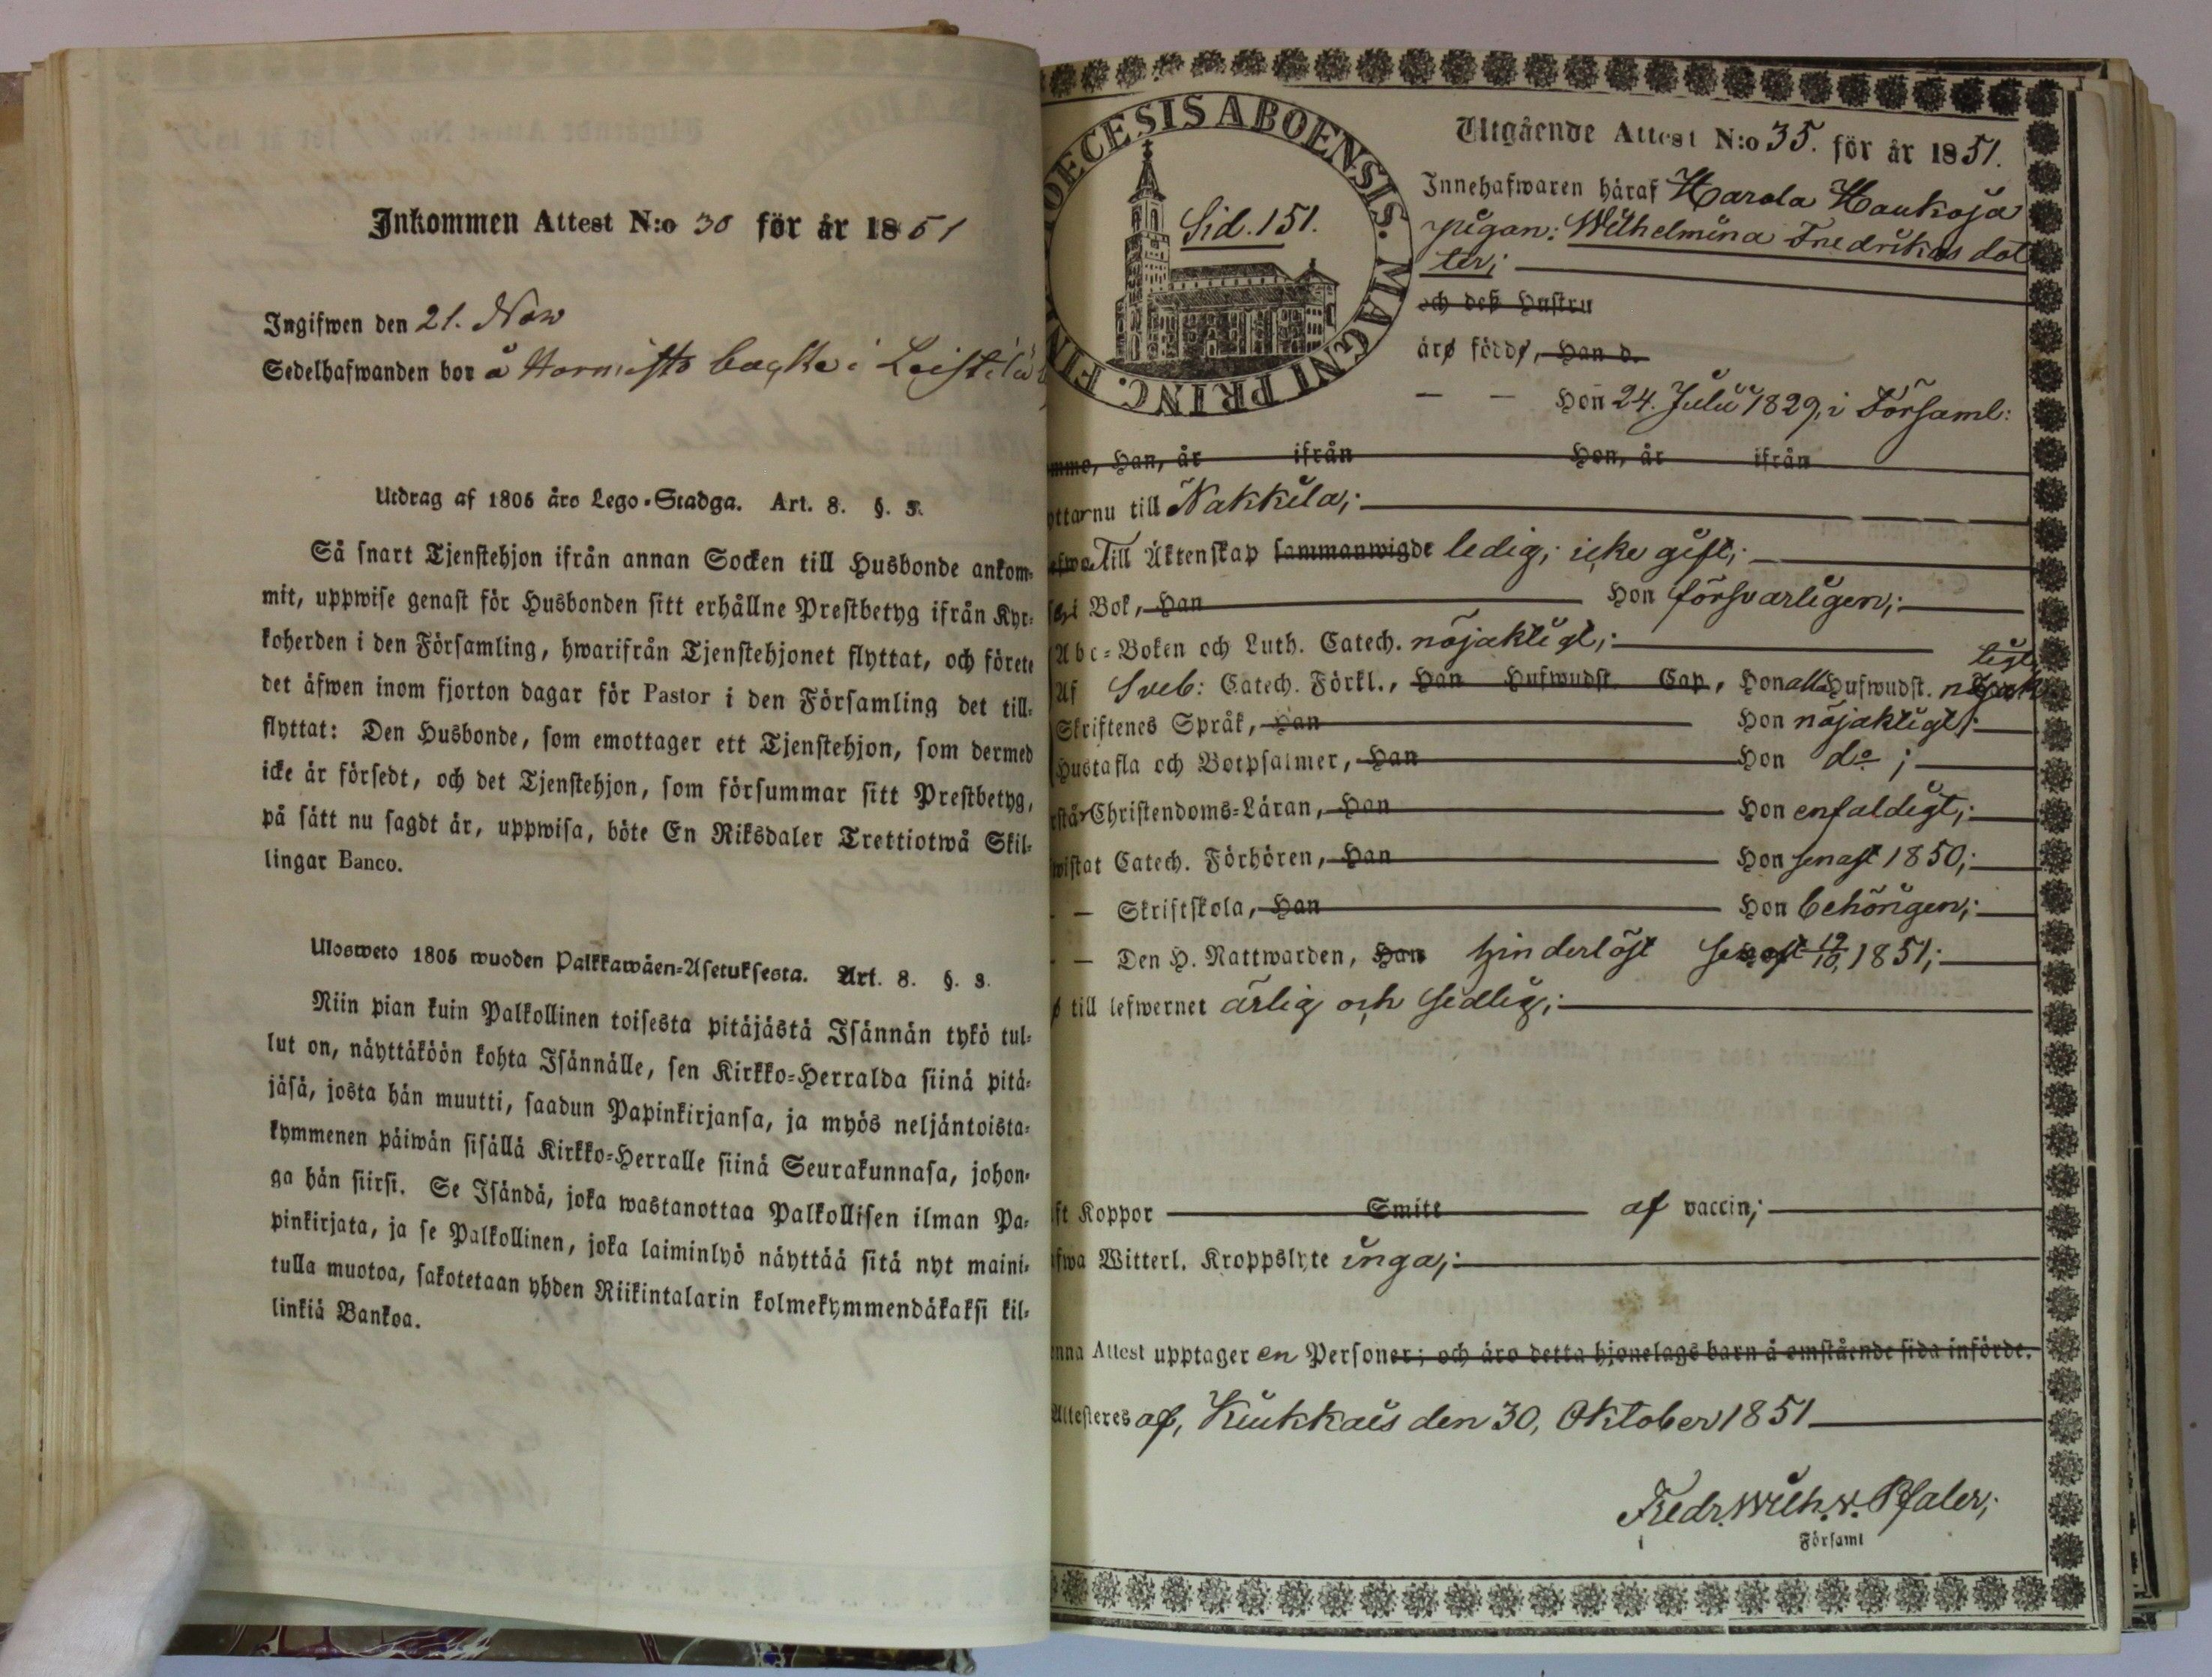 Inkommen Attest N:o 30 för år 1851
Ingifwen den 21. Now
Sedelhafwanden bor å backe i
Utdrag af 1805 års Lego-Stadga. Art. 8. §. 3.
Så snart Tjenstehjon ifrån annan Socken till Husbonde ankom-
mit, uppwise genast för Husbonden sitt erhållne Prestbetyg ifrån Kyr-
koherden i den Församling, hwarifrån Tjenstehjonet flyttat, och förete
det äfwen inom fjorton dagar för Pastor i den Församling det till-
flyttat: Den Husbonde, som emottager ett Tjenstehjon, som dermed
icke är försedt, och det Tjenstehjon, som försummar sitt Prestbetyg,
på sätt nu sagdt är, uppwisa, böte En Riksdaler Trettiotwå Skil-
lingar Banco.
Ulosweto 1805 wuoden Palkkawäen-Asetuksesta. Art. 8. §. 3.
Niin pian kuin Palkollinen toisesta pitäjästä Isännän tykö tul-
lut on, näyttäköön kohta Isännälle, sen Kirkko-Herralda siinä pitä-
jäsä, josta hän muutti, saadun Papinkirjansa, ja myös neljäntoista-
kymmenen päiwän sisällä Kirkko-Herralle siinä Seurakunnasa, johon-
ga hän siirsi. Se Isändä, joka wastanottaa Palkollisen ilman Pa-
pinkirjata, ja se Palkollinen, joka laiminlyö näyttää sitä nyt maini-
tulla muotoa, sakotetaan yhden Riikintalarin kolmekymmendäkaksi kil-
linkiä Bankoa.
DIOECESIS ABOENSIS. MAGNI PRINC. FIN
Sid. 151.
Utgående Attest N:o 35. för år 1851.
Innehafwaren häraf Harola Haukoja
pigan: Wilhelmina Fredrikas dot
ter;
och deß Hustru
äro födde, Han d.
— — Hon 24. Julii 1829, i Församl:
Han, år ifrån Hon, år ifrån
nu till Nakkila;
Till Äktenskap sammanwigde ledig; icke gift;
i Bok, Han Hon försvarligen;
Abc-Boken och Luth. Catech. nöjaktigt;
Af Sveb: Catech. Förkl., Han Hufwudst. Cap, Hon alla Hufwudst. nöjak
tigt
Skriftenes Språk, Han Hon nöjaktigt;
Hustafla och Botpsalmer, Han Hon do;
Christendoms-Läran, Han Hon enfaldigt;
Catech. Förhören, Han Hon senast 1850;
— Skriftskola, Han Hon behörigen;
— Den H. Nattwarden, Han hinderlöst senast 19/10, 1851;
till lefwernet ärlig och sedlig;
Koppor Smitt af vaccin;
Witterl. Kroppslyte inga;
Attest upptager en Personer; och äro detta hjonelags barn å omstående sida införde.
Attesteres af, Kiukkais den 30, Oktober 1851
Fredr. Wilh. v. Pfaler;
Församl